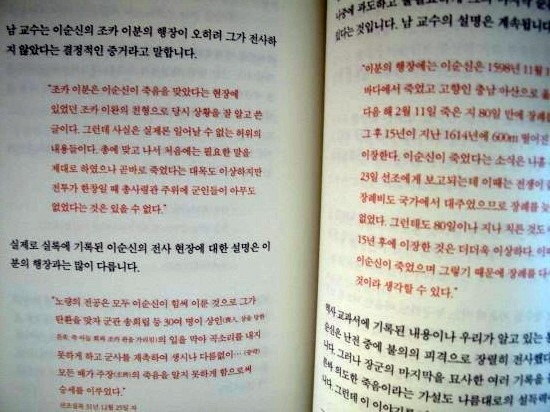 남 교수는 이순신의 조카 이분의 행장이 오히려 그가 전사하
지 않았다는 결정적인 증거라고 말합니다.
“조카 이분은 이순신이 죽음을 맞았다는 현장에
있었던 조카 이완의 전형으로 당시 상황을 잘 알고 쓴
글이다. 그런데 사실은 실제론 일어날 수 없는 허위의
내용들이다. 총에 맞고 나서 처음에는 필요한 말을
제대로 하였으나 곧바로 죽었다는 대목도 이상하지만
전투가 한창일 때 총사령관 주위에 군인들이 아무도
없었다는 것은 있을 수 없다.”
실제로 실록에 기록된 이순신의 전사 현장에 대한 설명은 이
분의 행장과는 많이 다릅니다.
“노량의 전공은 모두 이순신이 힘써 이룬 것으로 그가
탄환을 맞자 군관 송희립 등 30여 명이 상인
의 입을 막아 곡소리를 내지
못하게 하고 군사를 계속하여 생시나 다름없이…
모든 배가 주장(主將)의 죽음을 알지 못하게 함으로써
승세를 이루었다.”
선조실록 31년 12월 25일 자
나중에 과도하고
있다는 것입니다. 남 교수의 설명은 계속됩니다
“이분의 행장에는 이순신은 1598년 11월 1
바다에서 죽었고 고향인 충남 아산으로
다음 해 2월 11일 죽은 지 80일 만에 장례
그 후 15년이 지난 1614년에 600m 떨어진
이장한다. 이순신이 죽었다는 소식은 나흘
23일 선조에게 보고되는데 이때는 전쟁이
장례비도 국가에서 대주었으므로 장례를 늦
없었다. 그런데도 80일이나 지나 치른 것도
15년 후에 이장한 것은 더더욱 이상하다. 이때
이순신이 죽었으며 그렇기 때문에 장례를 다시
것이라 생각할 수 있다.”
역사 교과서에 기록된 내용이나 우리가 알고 있는
순신은 난전 중에 불의의 피격으로 장렬히 전사했다
니다. 그러나 장군의 마지막을 묘사한 여러 기록
른바 의도한 죽음이라는 가설도 나름대로의 설득력
니다. 그런데 이 이야기